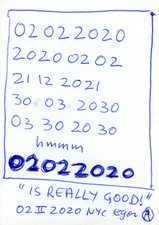 02022020
2020 02 02
21 12 2021
30 03 2030
03 30 20 30
hmmm
02022020
"IS REALLY GOOD!"
02 II 2020 NYC Egor